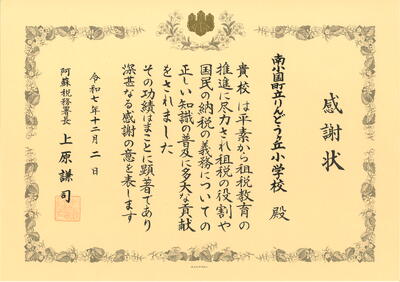 感謝状
南小国町立りんどうヶ丘小学校 殿
貴校は平素から租税教育の
推進に尽力され租税の役割や
国民の納税の義務についての
正しい知識の普及に多大な貢献
をされました
その功績はまことに顕著であり
深甚なる感謝の意を表します
令和七年十二月二日
阿蘇税務署長 上原謙司